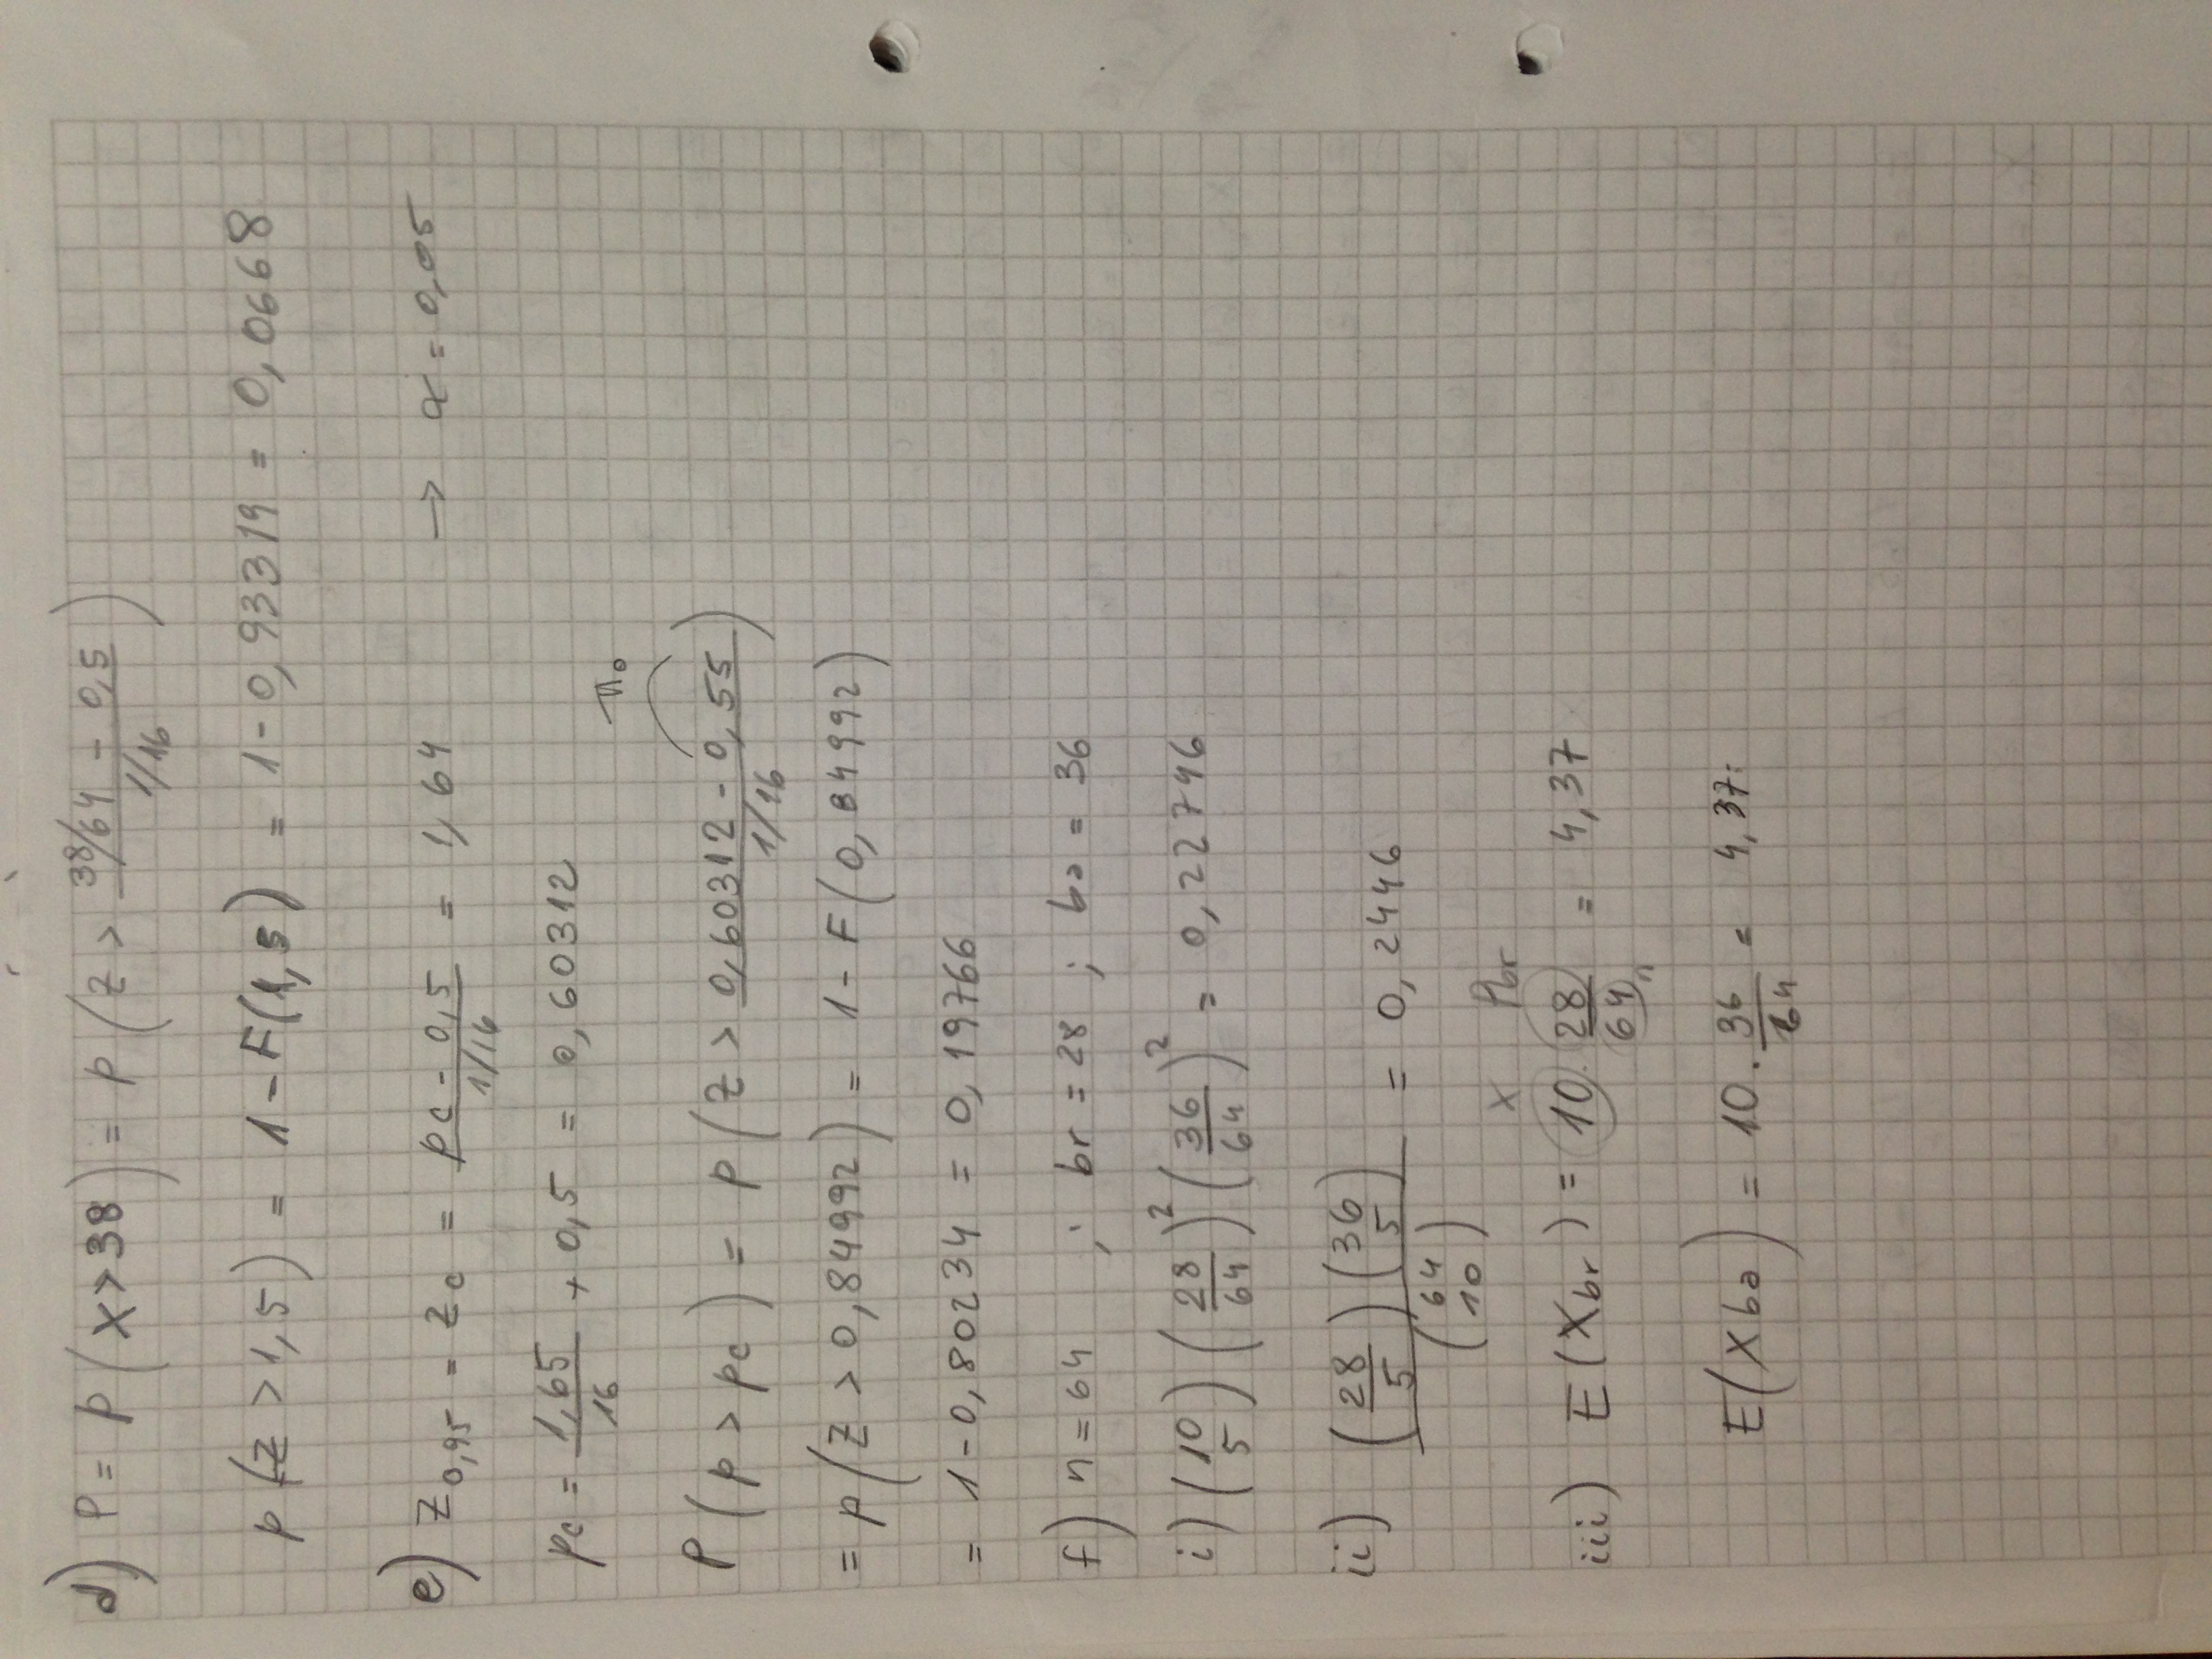 d) P = p(x>38) = p(z > (38/64 - 0,5)/(1/16))
p(z > 1,5) = 1 - F(1,5) = 1 - 0,93319 = 0,0668
e) z_{0,95} = z_c = (pc - 0,5)/(1/16) = 1,64 → α = 0,05
pc = 1,65/16 + 0,5 = 0,60312
π₀
P(p > pc) = p(z > (0,60312 - 0,55)/(1/16))
= p(z > 0,84992) = 1 - F(0,84992)
= 1 - 0,80234 = 0,19766
f) n = 64 ; br = 28 ; ba = 36
i) (10 5) (28/64)² (36/64)² = 0,22746
ii) (28/5) (36 5) / (64 10) = 0,2446
x Pbr
iii) E(Xbr) = 10 · 28/64 n = 4,37
E(Xba) = 10 · 36/64 = 4,37